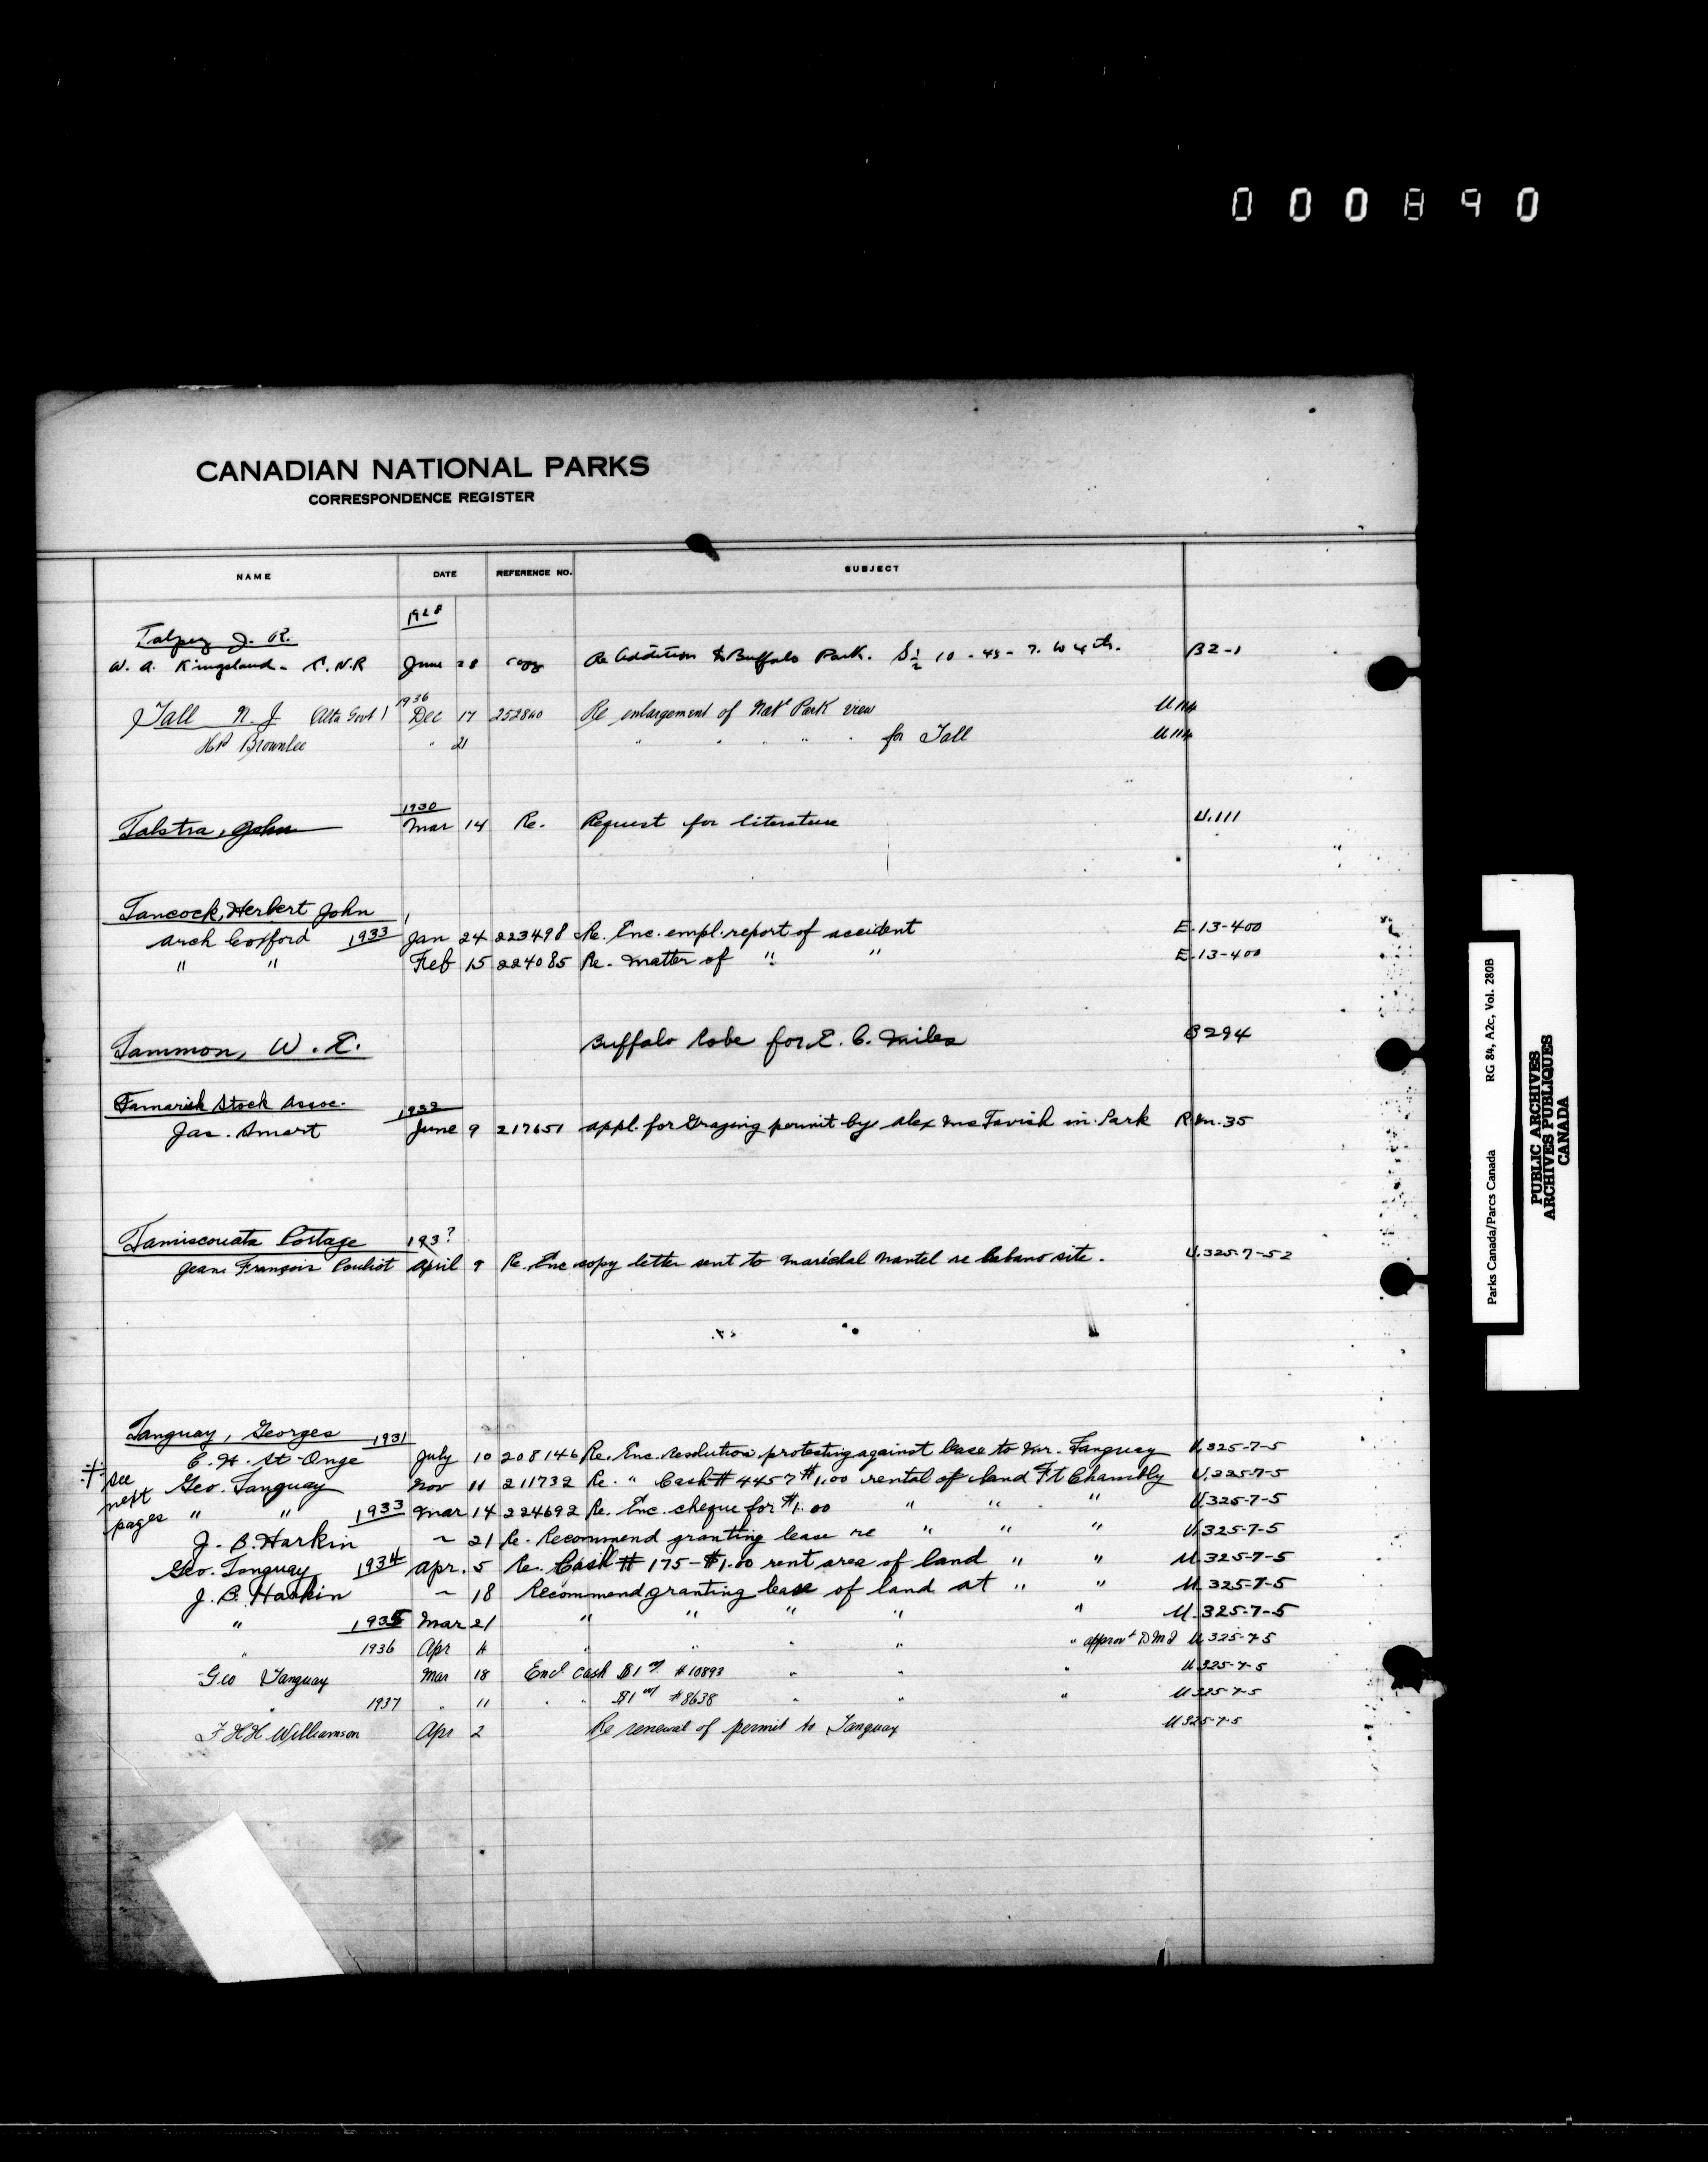 000890
CANADIAN NATIONAL PARKS
CORRESPONDENCE REGISTER
NAME DATE REFERENCE NO. SUBJECT
1928
J. R.
W. A. Kingsland - C.N.R June 28 copy Re Addition to Buffalo Park. S½ 10 - 43 - 7. W 4th. B2-1
1936
Tall N. J (Alta Govt) Dec 17 252840 Re enlargement of Nat Park view U114
H P Brownlee " 21 " " " " " for Tall U114
1930
Talstra, John Mar 14 Re. Request for literature U.111
Tancock, Herbert John
Arch 1933 Jan 24 223498 Re. Enc. empl. report of accident E.13-400
" " Feb 15 224085 Re. Matter of " " E.13-400
Tammon, W. E. Buffalo Robe for E. C. Miles B294
Tamarisk Stock Assoc. 1932
Jas. Smart June 9 217651 Appl. for Grazing permit by Alex McTavish in Park R.M.35
Tamiscouata Portage 193?
Jean François Pouliot April 9 Re. Enc copy letter sent to Maréchal Nantel re Cabano site. U.325-7-52
Tanguay, Georges 1931
E. H. St-Onge July 10 208146 Re. Enc. Resolution protesting against lease to Mr. Tanguay U.325-7-5
see Geo. Tanguay Nov 11 211732 Re. " Cash # 4457 $1.00 rental of land Ft Chambly U.325-7-5
next
pages " " 1933 Mar 14 224692 Re. Enc. cheque for $1.00 " " " U.325-7-5
J. B. Harkin ~ 21 Re. Recommend granting lease re " " " U.325-7-5
Geo. Tanguay 1934 Apr. 5 Re. Cash # 175 - $1.00 rent area of land " " U.325-7-5
J. B. Harkin ~ 18 Recommend granting lease of land at " " U.325-7-5
" 1935 Mar 21 " " " " " U.325-7-5
" 1936 Apr 4 " " " " " approvt D M I U.325-7-5
Geo Tanguay Mar 18 Encl cash $1 00 # 10893 " " " U.325-7-5
" 1937 " 11 " " $1 00 # 8638 " " " U325-7-5
F H H Williamson Apr 2 Re renewal of permit to Tanguay U325-7-5
Parks Canada/Parcs Canada RG 84, A2c, Vol. 280B
PUBLIC ARCHIVES
ARCHIVES PUBLIQUES
CANADA